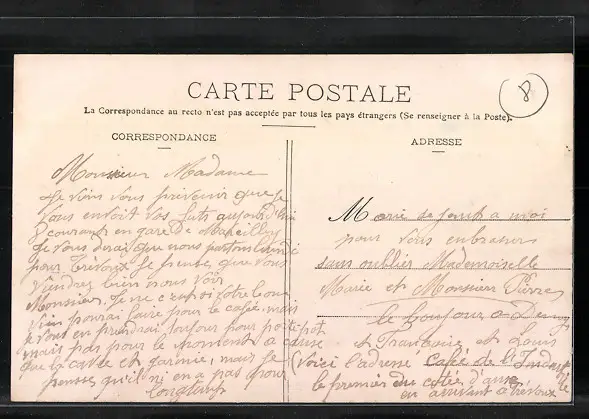 CARTE POSTALE
8
La Correspondance au recto n'est pas acceptée par tous les pays étrangers (Se renseigner à la Poste).
CORRESPONDANCE
ADRESSE
Monsieur Madame
Je viens vous prévenir que je
vous envoit vos fûts aujourd'hui
courant en gare de Marcilly
Je vous dirai que nous partons lundi
pour Trévoux Je pense que vous
viendrez bien nous voir
Monsieur Je ne c si votre
vin pourai faire pour le café mais
je vous en prendrai toujour pour porte pot
mais pas pour le moment a cause
que la cave et garnie, mais je
penses qu'il ni en a pas pour
longtemps
Marie de joint a moi
pour vous embrasser
sans oublier Mademoiselle
Marie et Monsieur Pierre
le bonjour a
et Françoise et Louis
(Voici l'adresse café de l'Industrie
le premier du coter d'anse
en arrivant a trévoux